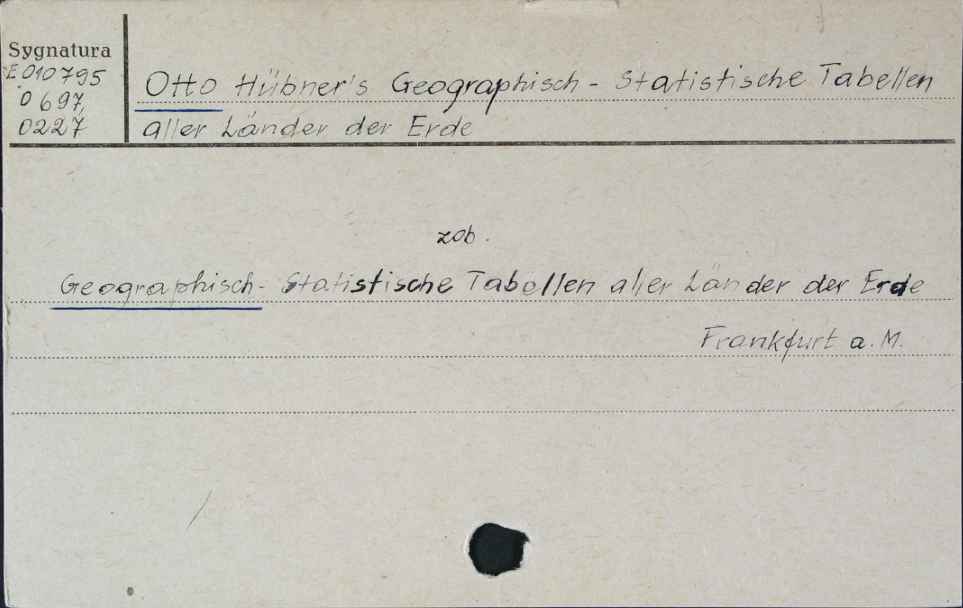 Sygnatura
E 010795
0697,
0227
Otto Hübner's Geographisch - Statistische Tabellen
aller Länder der Erde
zob.
Geographisch - Statistische Tabellen aller Länder der Erde
Frankfurt a. M.